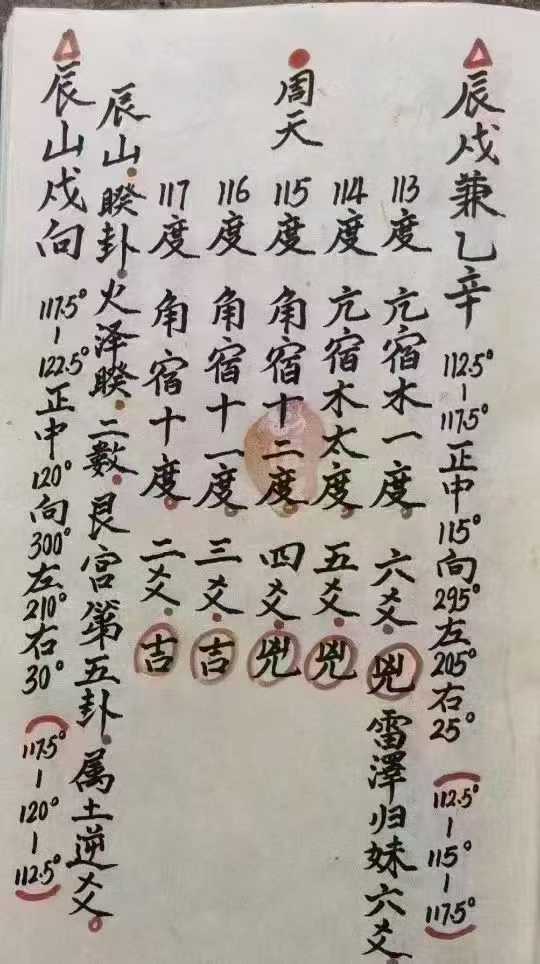 辰戌兼乙辛 112.5°-117.5°正中115°向295°左205°右25° (112.5°-115°-117.5°)
周天
113度 亢宿木一度 六爻 兇 雷澤归妹六爻
114度 亢宿木太度 五爻 兇
115度 角宿十二度 四爻 兇
116度 角宿十一度 三爻 吉
117度 角宿十度 二爻 吉
辰山睽卦火泽睽二數艮宫第五卦属土逆爻
辰山戌向 117.5°-122.5°正中120°向300°左210°右30° (117.5°-120°-112.5°)